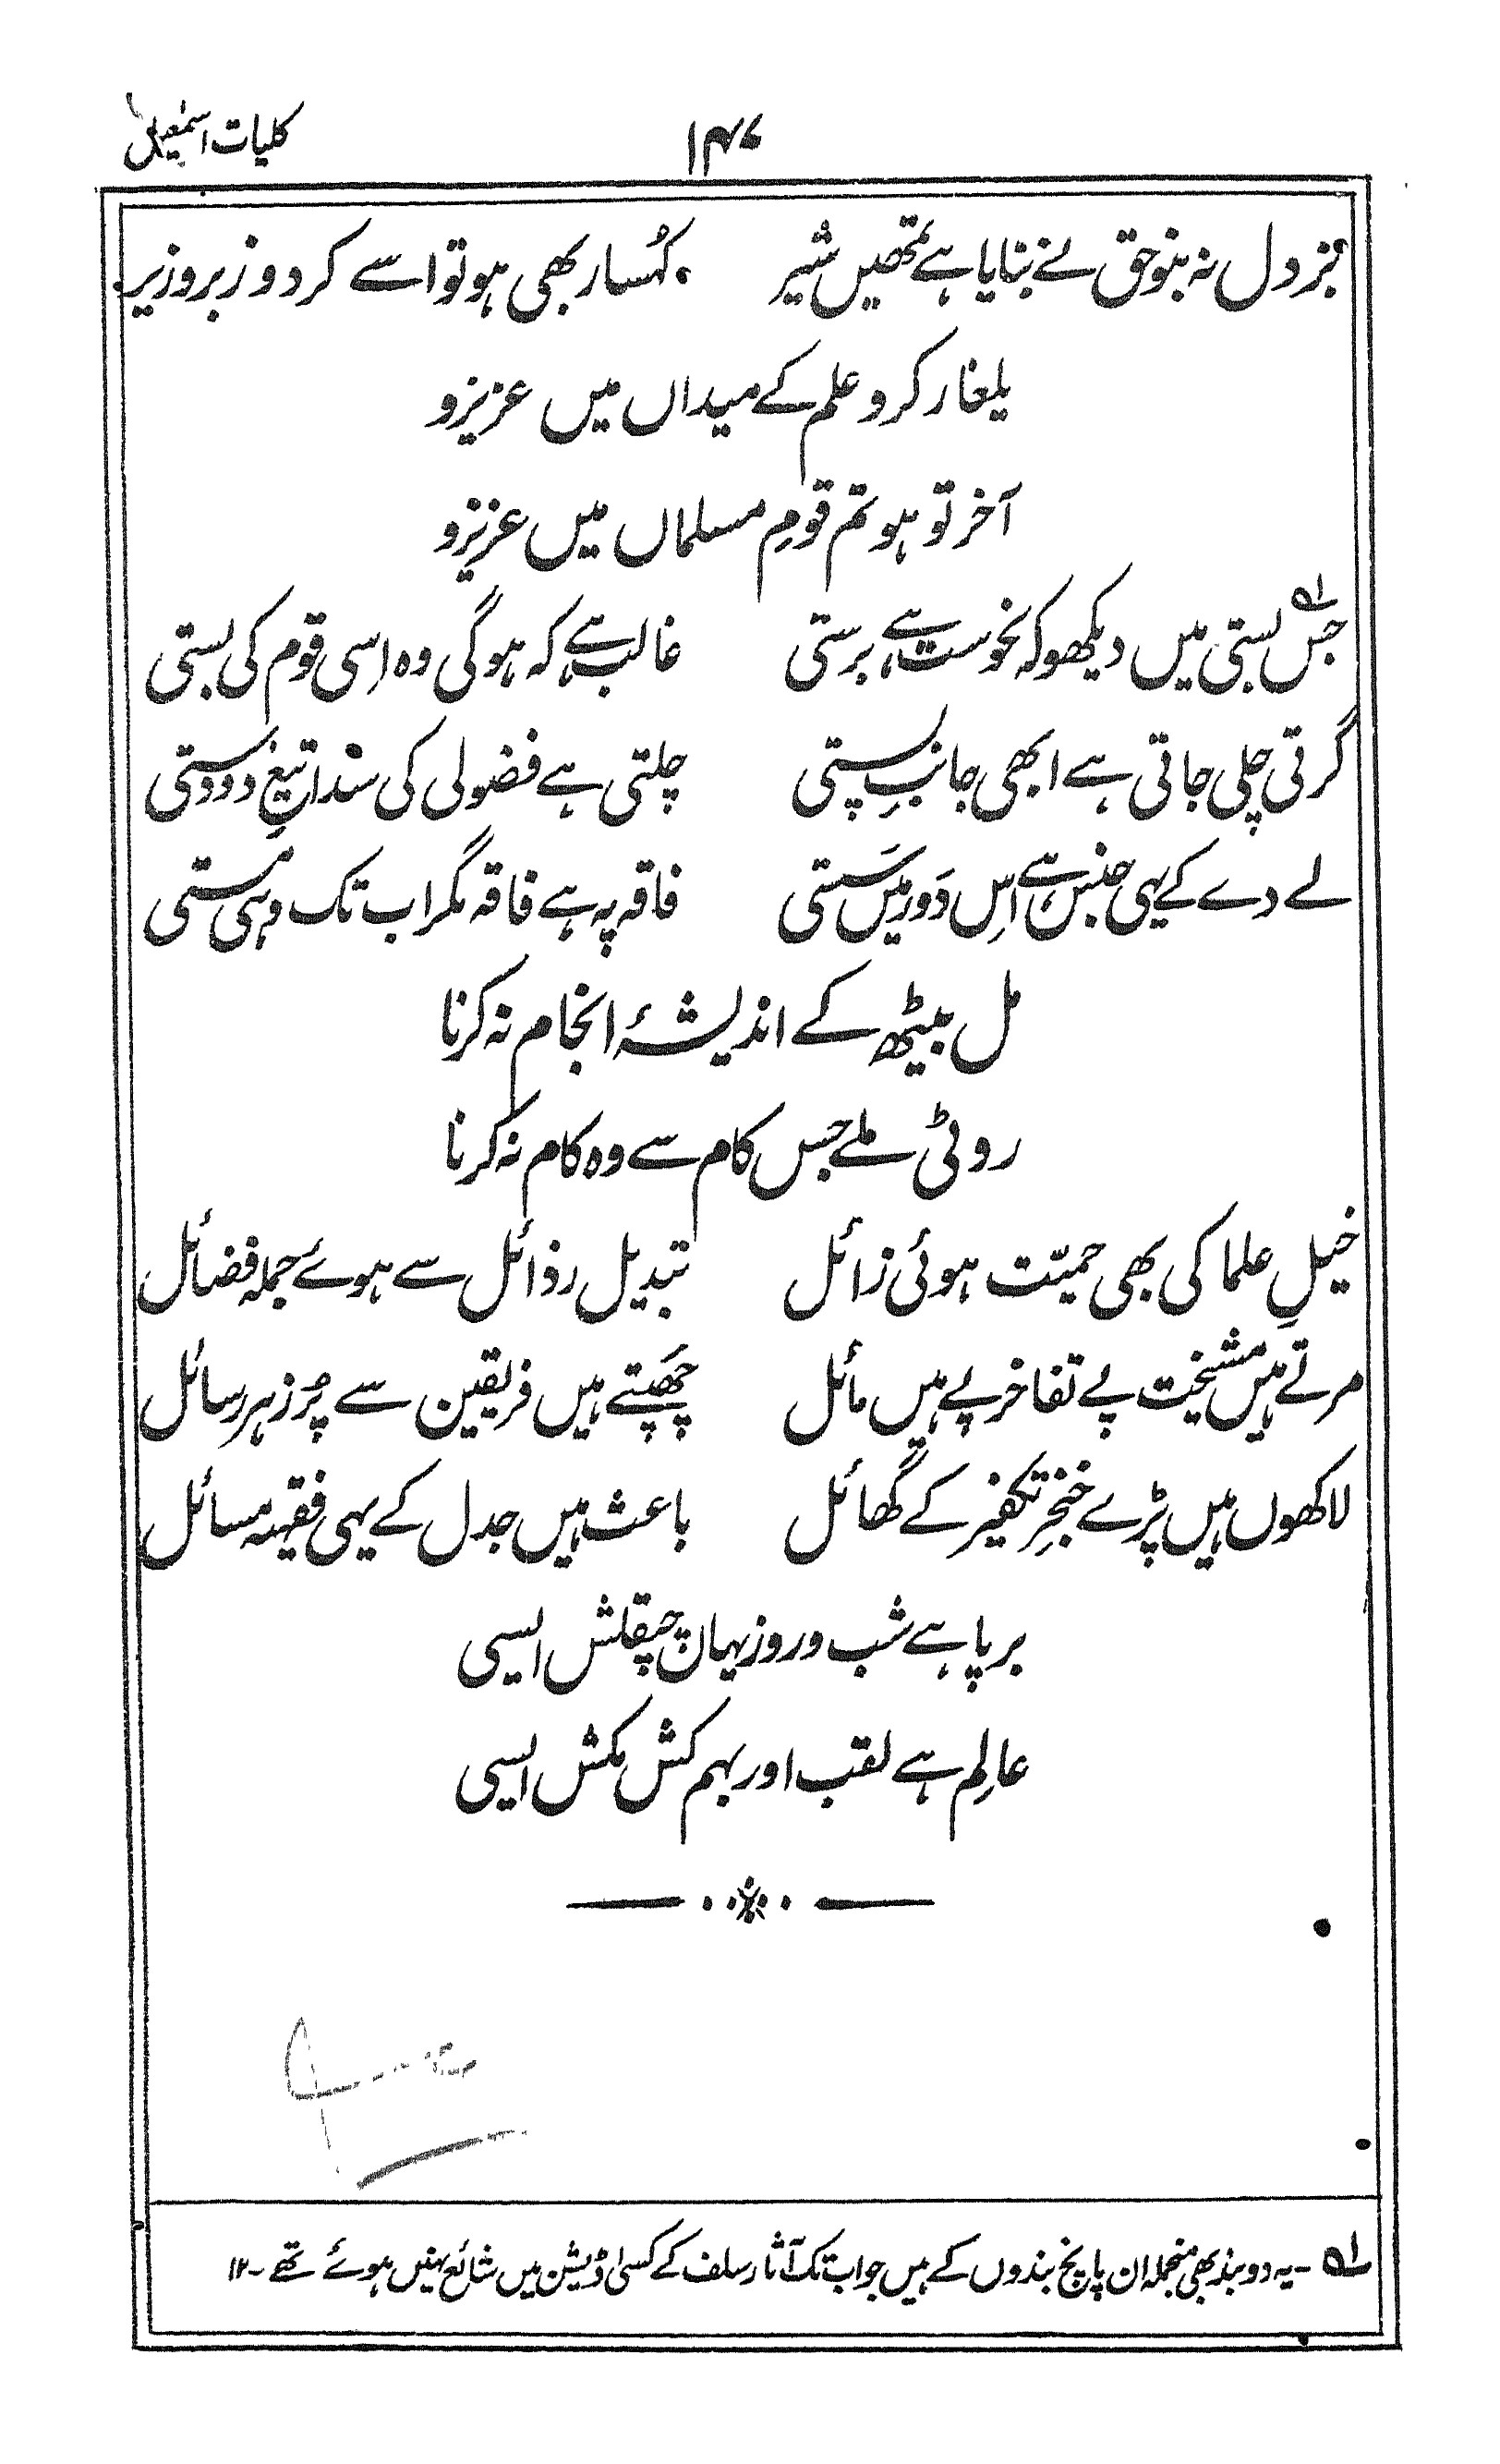 ۱۴۷ کلیات اسمٰعیل
بزدل نہ بنو حق نے بنایا ہے تمھیں شیر کہُسار بھی ہو تو اسے کر دو زبر و زیر
یلغار کرو علم کے میداں میں عزیزو
آخر تو ہو تم قومِ مسلماں میں عزیزو
جس بستی میں دیکھو کہ نحوست ہے برستی غالب ہے کہ ہوگی وہ اِسی قوم کی بستی
گرتی چلی جاتی ہے ابھی جانبِ پستی چلتی ہے فضولی کی سدا تیغِ دو دستی
لے دے کے یہی جنس ہے اِس دَور میں سَستی فاقہ پہ ہے فاقہ مگر اب تک وہی مستی
مل بیٹھ کے اندیشۂ انجام نہ کرنا
روٹی ملے جس کام سے وہ کام نہ کرنا
خیلِ علما کی بھی حمیّت ہوئی زائل تبدیل رذائل سے ہوئے جملہ فضائل
مرتے ہیں مشیخت پے تفاخر پے ہیں مائل چھَپتے ہیں فریقین سے پُر زہر رسائل
لاکھوں ہیں پڑے خنجرِ تکفیر کے گھائل باعث ہیں جدل کے یہی فقہیہ مسائل
برپا ہے شب و روز یہاں چپقلش ایسی
عالِم ہے لقب اور بہم کش مکش ایسی
لہ ۔ یہ دو بند بھی منجملہ ان پانچ بندوں کے ہیں جو اب تک آثار سلف کے کسی اڈیشن میں شائع نہیں ہوئے تھے ۔ ۱۲